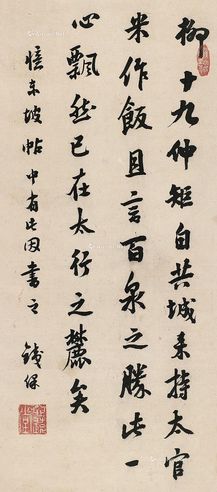 柳十九仲矩自共城来持太官
米作飯且言百泉之勝此一
心飄然已在太行之麓矣
憶東坡帖中有此因書之 鐵保